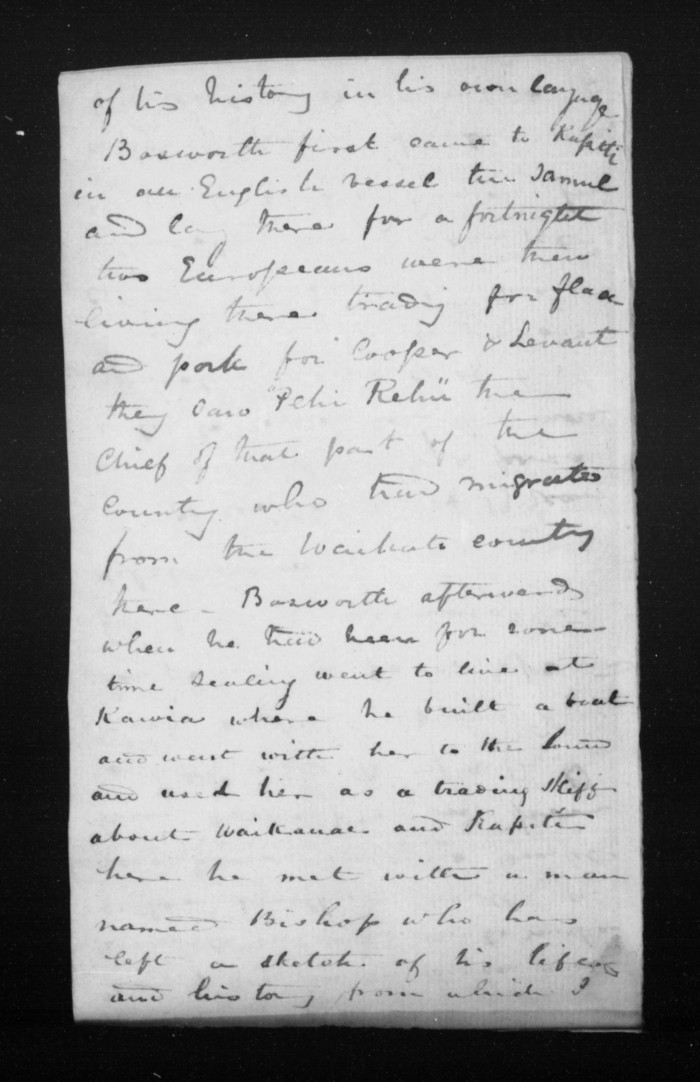 of his history in his own language
Bosworth first came to Kapiti
in an English vessel the Samuel
and lay there for a fortnight
two Europeans were then
living there trading for flax
and pork for Cooper & Levant
they saw "Pehi Rehu" the
Chief of that part of the
country who had migrated
from the Waikato country
here - Bosworth afterwards
when he had been for some
time sealing went to live at
Kawia where he built a boat
and went with her to the Sound
and used her as a trading skiff
about Waikanae and Kapiti
here he met with a man
named Bishop who has
left a sketch of his life
and history from which I